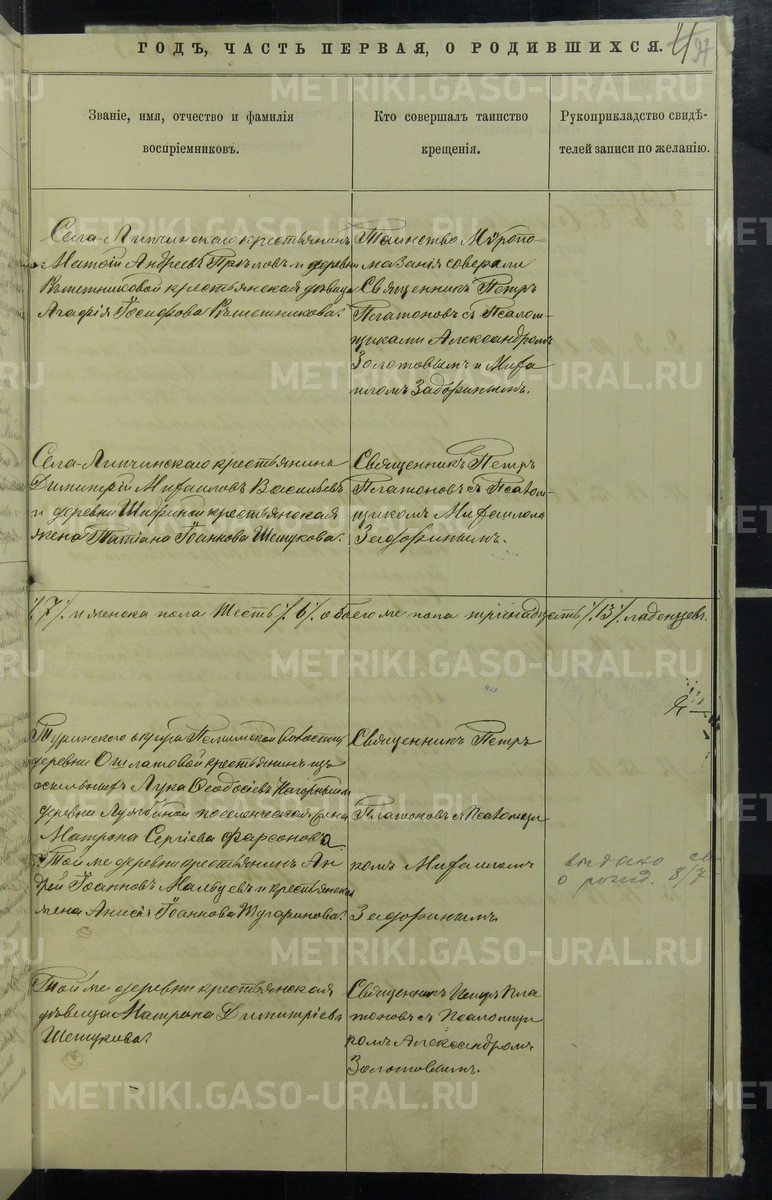 ГОДЪ, ЧАСТЬ ПЕРВАЯ, О РОДИВШИХСЯ.
Званіе, имя, отчество и фамилія
воспріемниковъ.
Кто совершалъ таинство
крещенія.
Рукоприкладство свидѣ-
телей записи по желанію.
Села-Липчинскаго крестьянинъ
Андреевъ и деревни
крестьянская дѣвица
Агафія Іосифова Рѣшетникова.
Таинство Мѵропо-
мазанія соверали
Священникъ Петръ
Платоновъ съ Псалом-
щиками Александромъ
Золотовымъ и Миха
иломъ Задоринымъ.
Села-Липчинскаго крестьянинъ
Димитрій Михаиловъ Васильевъ
и деревни крестьянская
жена Татіана Іоаннова Шешукова.
Священникъ Петръ
Платоновъ съ Псалом-
щикомъ Михаиломъ
Задоринымъ.
/.7/. и женска пола Шесть /.6/. обоего же пола тринадцать /.13/. младенцевъ.
Туринскаго округа волости
деревни крестьянинъ изъ
Лука Ѳеодосіевъ
деревни
Матрона Сергіева
Той же деревни крестьянинъ Ан
дрей Іоанновъ Мальцевъ и крестьянская
жена Анисія Іоаннова
Священникъ Петръ
Платоновъ съ Псаломщи
комъ Михаиломъ
Задоринымъ.
выдано св
о рожд. 8/7
Той же деревни крестьянская
дѣвица Матрона Димитріева
Шешукова.
Священникъ Петръ Пла
тоновъ съ Псаломщи
комъ Александромъ
Золотовымъ.
METRIKI.GASO-URAL.RU